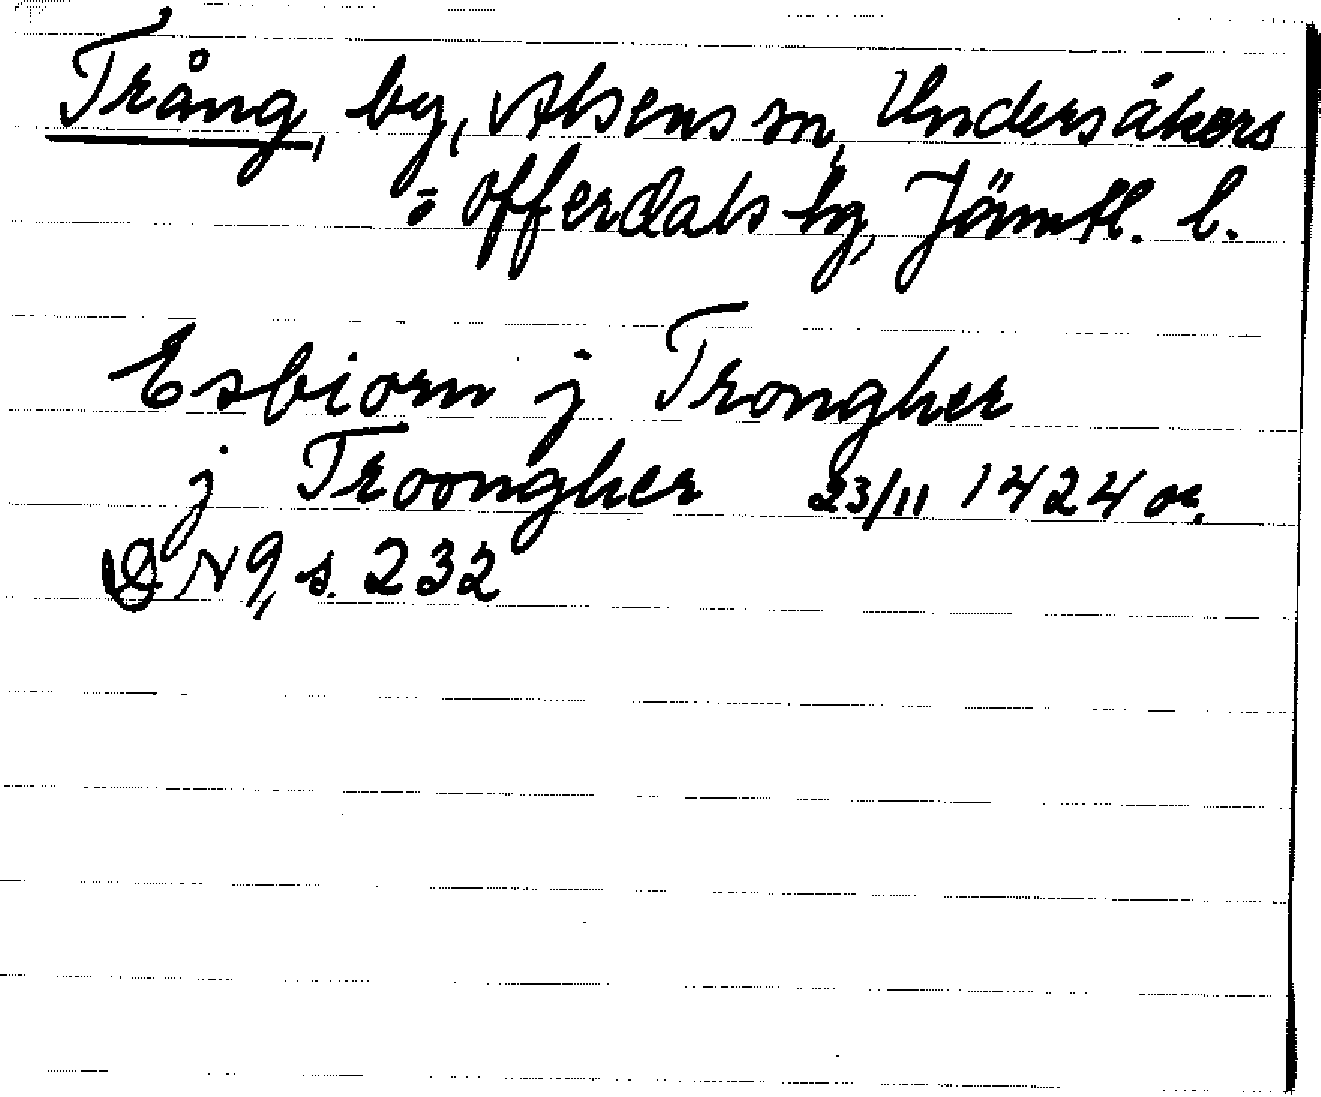 Trång, by, Alsens sn, Undersåkers
o Offerdals tg, Jämtl. l.
Esbiorn j Trongher
j Troongher 23/11 1424 or.
DN 9, s. 232